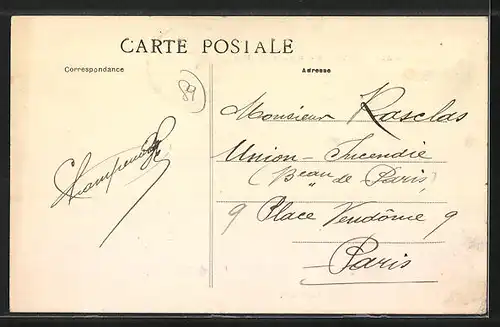 CARTE POSTALE
Correspondance
Adresse
89
Monsieur Rasclas
Union-Incendie
(Beau de Paris)
9 Place Vendôme 9
Paris